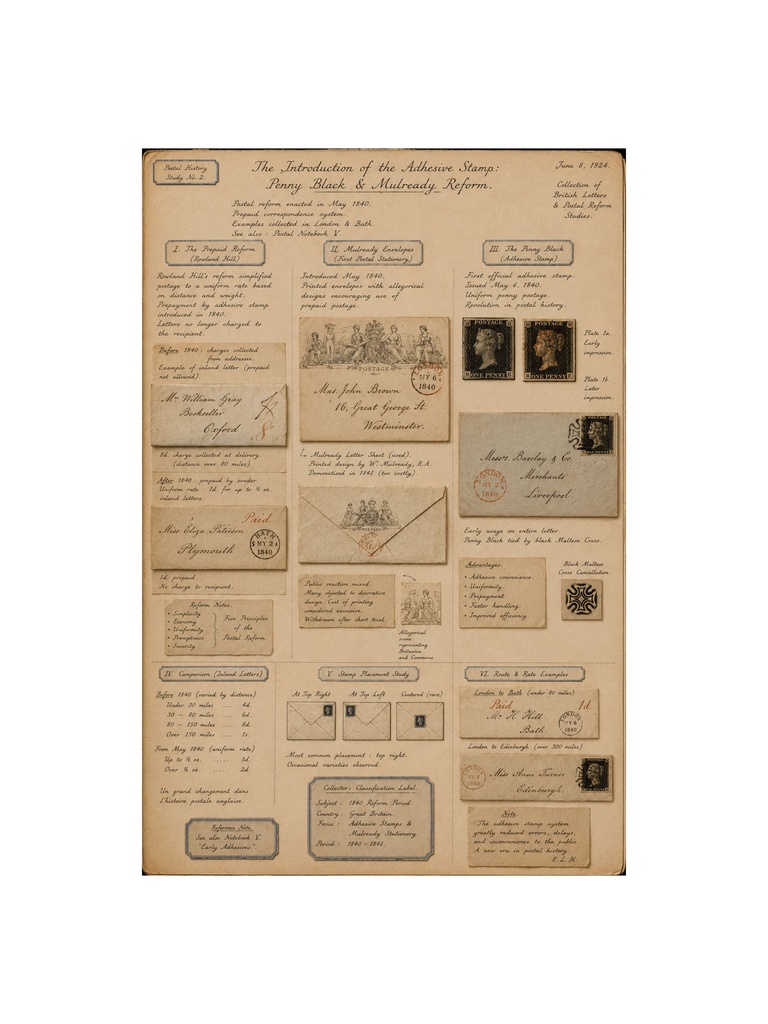 Postal History
Study No. 2.
The Introduction of the Adhesive Stamp:
Penny Black & Mulready Reform.
June 8, 1924.
Collection of
British Letters
& Postal Reform
Studies.
Postal reform enacted in May 1840.
Prepaid correspondence system.
Examples collected in London & Bath.
See also : Postal Notebook V.
I. The Prepaid Reform
(Rowland Hill)
Rowland Hill's reform simplified
postage to a uniform rate based
on distance and weight.
Prepayment by adhesive stamp
introduced in 1840.
Letters no longer charged to
the recipient.
Before 1840 : charges collected
from addresses.
Example of inland letter (prepaid
not allowed).
Mr William Gray
Bookseller
Oxford
8
8d. charge collected at delivery.
(distance over 80 miles)
After 1840 : prepaid by sender.
Uniform rate : 1d. for up to ½ oz.
inland letters.
Paid
Miss Eliza Paterson
Plymouth
BATH
MY 2
1840
1d. prepaid.
No charge to recipient.
Reform Notes:
• Simplicity
• Economy
• Uniformity
• Promptness
• Security
Five Principles
of the
Postal Reform
II. Mulready Envelopes
(First Postal Stationery)
Introduced May 1840.
Printed envelopes with allegorical
designs encouraging use of
prepaid postage.
POSTAGE
LONDON
MY 6
1840
Mrs. John Brown
16, Great George St.
Westminster.
Mulready Letter Sheet (used).
Printed design by W. Mulready, R.A.
Demonetised in 1841 (too costly)
POSTAGE
Public reaction mixed.
Many objected to decorative
design. Cost of printing
considered excessive.
Withdrawn after short trial.
Allegorical
scene
representing
Britannia
and Commerce
III. The Penny Black
(Adhesive Stamp)
First official adhesive stamp.
Issued May 6, 1840.
Uniform penny postage.
Revolution in postal history.
POSTAGE
ONE PENNY
POSTAGE
ONE PENNY
Plate 1a.
Early
impression.
Plate 1b.
Later
impression.
Messrs. Barclay & Co.
Merchants
Liverpool
LONDON
MY 2
1840
Early usage on entire letter.
Penny Black tied by black Maltese Cross.
Advantages:
• Adhesive convenience
• Uniformity.
• Prepayment.
• Faster handling.
• Improved efficiency.
Black Maltese
Cross Cancellation.
IV. Comparison (Inland Letters)
Before 1840 (varied by distance)
Under 30 miles .... 4d.
30 – 80 miles .... 6d.
80 – 150 miles .... 8d.
Over 150 miles .... 1s.
From May 1840 (uniform rate)
Up to ½ oz. ..... 1d.
Over ½ oz. ..... 2d.
Un grand changement dans
l'histoire postale anglaise.
Reference Note.
See also Notebook V.
"Early Adhesives".
V. Stamp Placement Study
At Top Right
At Top Left
Centered (rare)
Most common placement : top right.
Occasional varieties observed.
Collector's Classification Label.
Subject : 1840 Reform Period.
Country : Great Britain.
Focus : Adhesive Stamps &
Mulready Stationery.
Period : 1840 – 1841.
VI. Route & Rate Examples
London to Bath (under 80 miles)
Paid
1d.
Mr. H. Hill
Bath.
London to Edinburgh (over 300 miles)
Miss Anne Turner
Edinburgh.
Note
The adhesive stamp system
greatly reduced errors, delays,
and inconvenience to the public.
A new era in postal history.
E. L. H.